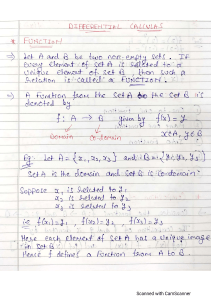 DIFFERENTIAL CALCULUS
* FUNCTION:
⇒ Let A and B be two non-empty sets. If
every element of set A is related to a
unique element of set B then such a
relation is called a FUNCTION.
⇒ A function from the set A to the set B is
denoted by
f: A → B given by f(x) = y
Domain Co-domain x∈A, y∈B
Eg: Let A = {x₁, x₂, x₃} and B = {y₁, y₂, y₃}
Set A is the domain and Set B is Codomain.
Suppose x₁ is related to y₁
x₂ is related to y₂
x₃ is related to y₃
ie f(x₁) = y₁, f(x₂) = y₂, f(x₃) = y₃
Here each element of set A has a unique image
in set B.
Hence f defines a function from A to B
Scanned with CamScanner